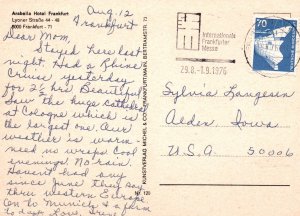 Arabella Hotel Frankfurt
Lyoner Straße 44 - 48
6000 Frankfurt - 71
Aug. 12
Frankfurt
Dear Mom,
Stayed here last
night. Had a Rhine
Cruise yesterday
for 2½ hrs Beautiful
Saw the huge cathedral
at Cologne which is
the largest one. Our
weather is warm-
need no wraps cool
evenings. No rain.
Havent had any
since June they say
thru western Europe
On to Munich & a farm
Love,
KUNSTVERLAG MICHEL & CO., FRANKFURT/MAIN, BERTRAMSTR. 73
Nr. 120
Internationale
Frankfurter
Messe
29.8.-1.9.1976
70
Sylvia Langesen
Alden, Iowa
U.S.A. 50006